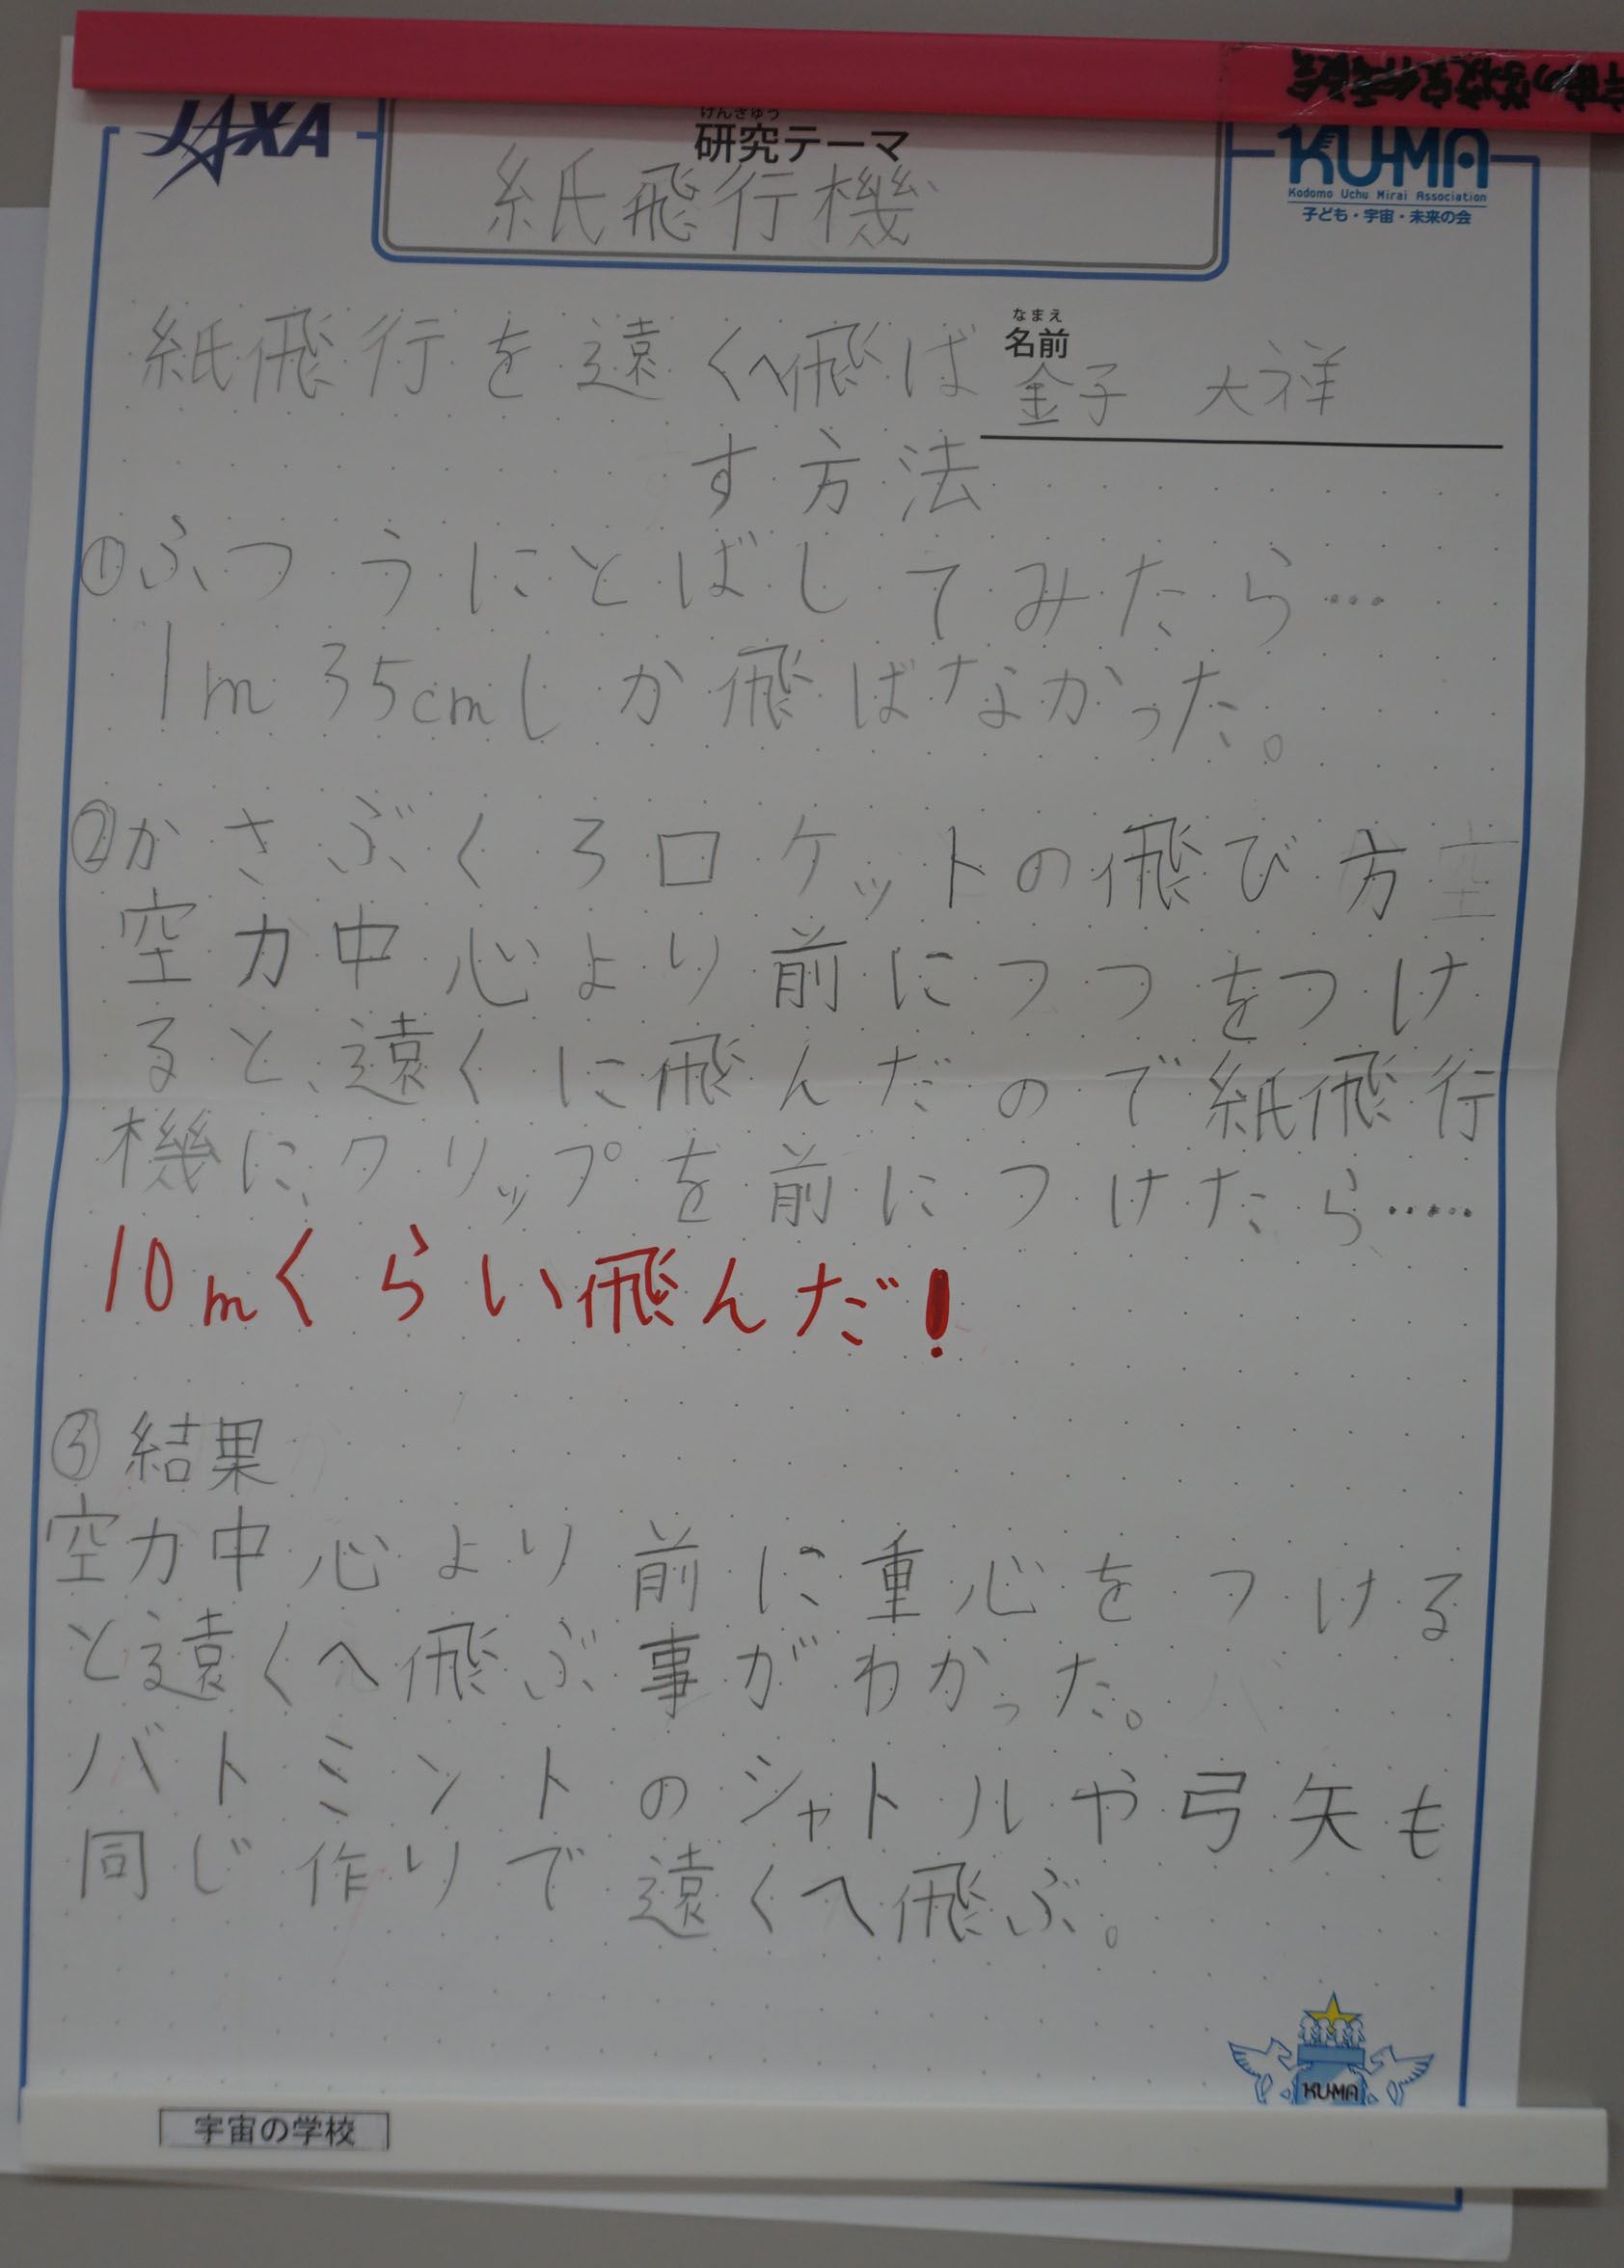 JAXA
けんきゅう
研究テーマ
紙飛行機
KU-MA
Kodomo Uchu Mirai Association
子ども・宇宙・未来の会
なまえ
名前
金子 大祥
紙飛行を遠くへ飛ば
す方法
①ふつうにとばしてみたら…
1m35cmしか飛ばなかった。
②かさぶくろロケットの飛び方
空力中心より前につつをつけ
ると、遠くに飛んだので紙飛行
機に、クリップを前につけたら……
10mくらい飛んだ!
③結果
空力中心より前に重心をつける
と遠くへ飛ぶ事がわかった。
バトミントのシャトルや弓矢も
同じ作りで遠くへ飛ぶ。
KU-MA
宇宙の学校